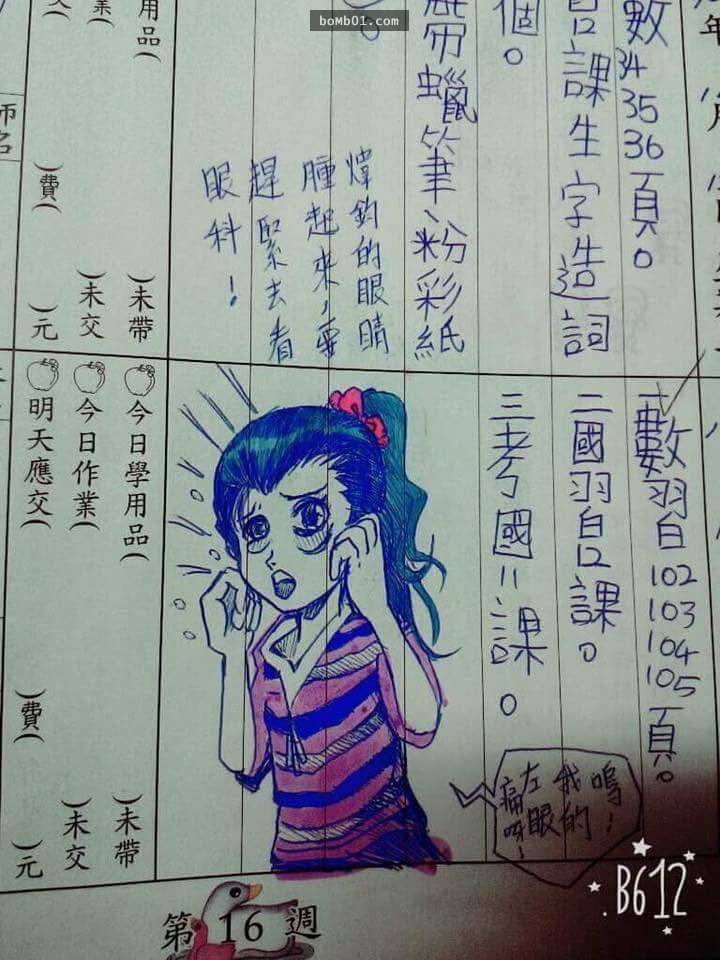 boMb01.com
數 34 35 36 頁。
習課生字造詞
個。
帶蠟筆、粉彩紙
煒鈞的眼睛
腫起來，要
趕緊去看
眼科！
用品︵
︶費︵
︶元
︶未交
︶未帶
一數習 102 103 104 105 頁。
二國習 課。
三考國 11 課。
嗚！
我的
左眼
痛呀！
今日學用品︵
︶未帶
今日作業︵
︶未交
明天應交︵
︶費︵
︶元
第 16 週
B612